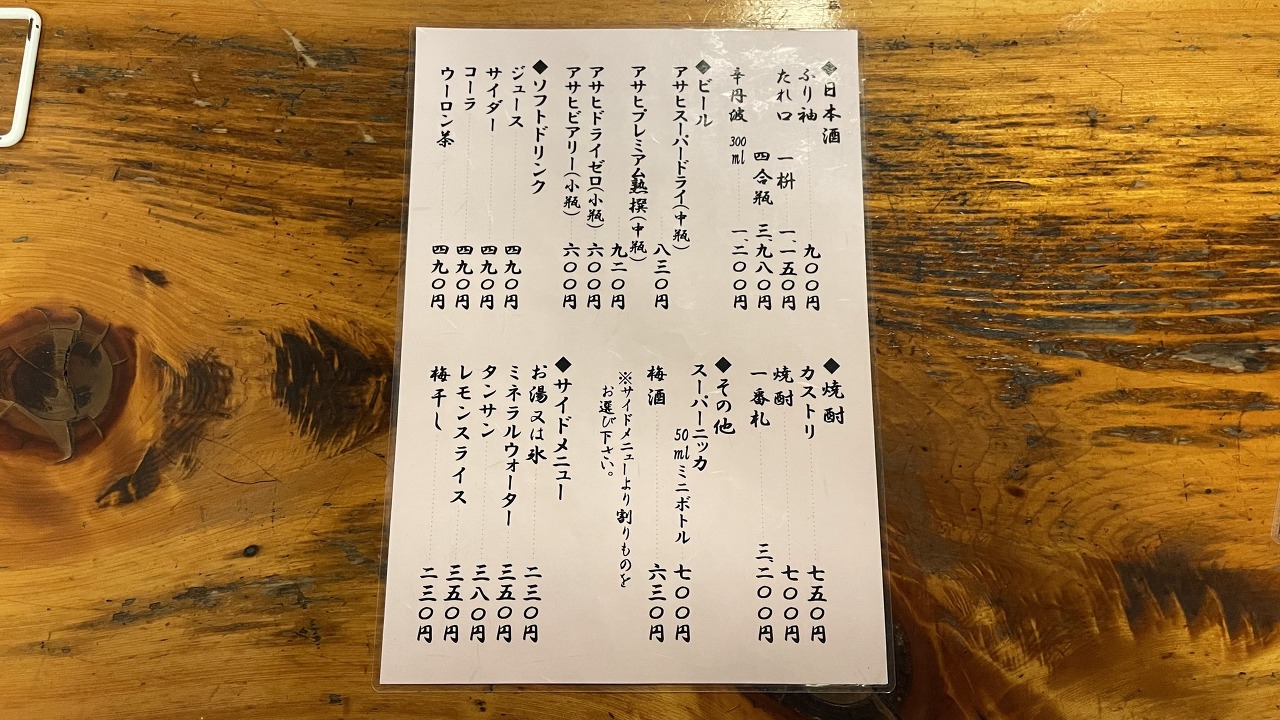 ◆日本酒
ふり袖 九〇〇円
たれ口 一枡 一、一五〇円
四合瓶 三、九八〇円
辛丹波 300ml 一、二〇〇円
◆ビール
アサヒスーパードライ(中瓶)
八三〇円
アサヒプレミアム熟撰(中瓶)
九二〇円
アサヒドライゼロ(小瓶) 六〇〇円
アサヒビアリー(小瓶) 六〇〇円
◆ソフトドリンク
ジュース 四九〇円
サイダー 四九〇円
コーラ 四九〇円
ウーロン茶 四九〇円
◆焼酎
カストリ 七五〇円
焼酎 七〇〇円
一番札 三、二〇〇円
◆その他
スーパーニッカ
50mlミニボトル 七〇〇円
梅酒 六三〇円
※サイドメニューより割りものを
お選び下さい。
◆サイドメニュー
お湯又は氷 二三〇円
ミネラルウォーター 三五〇円
タンサン 三八〇円
レモンスライス 三五〇円
梅干し 二三〇円